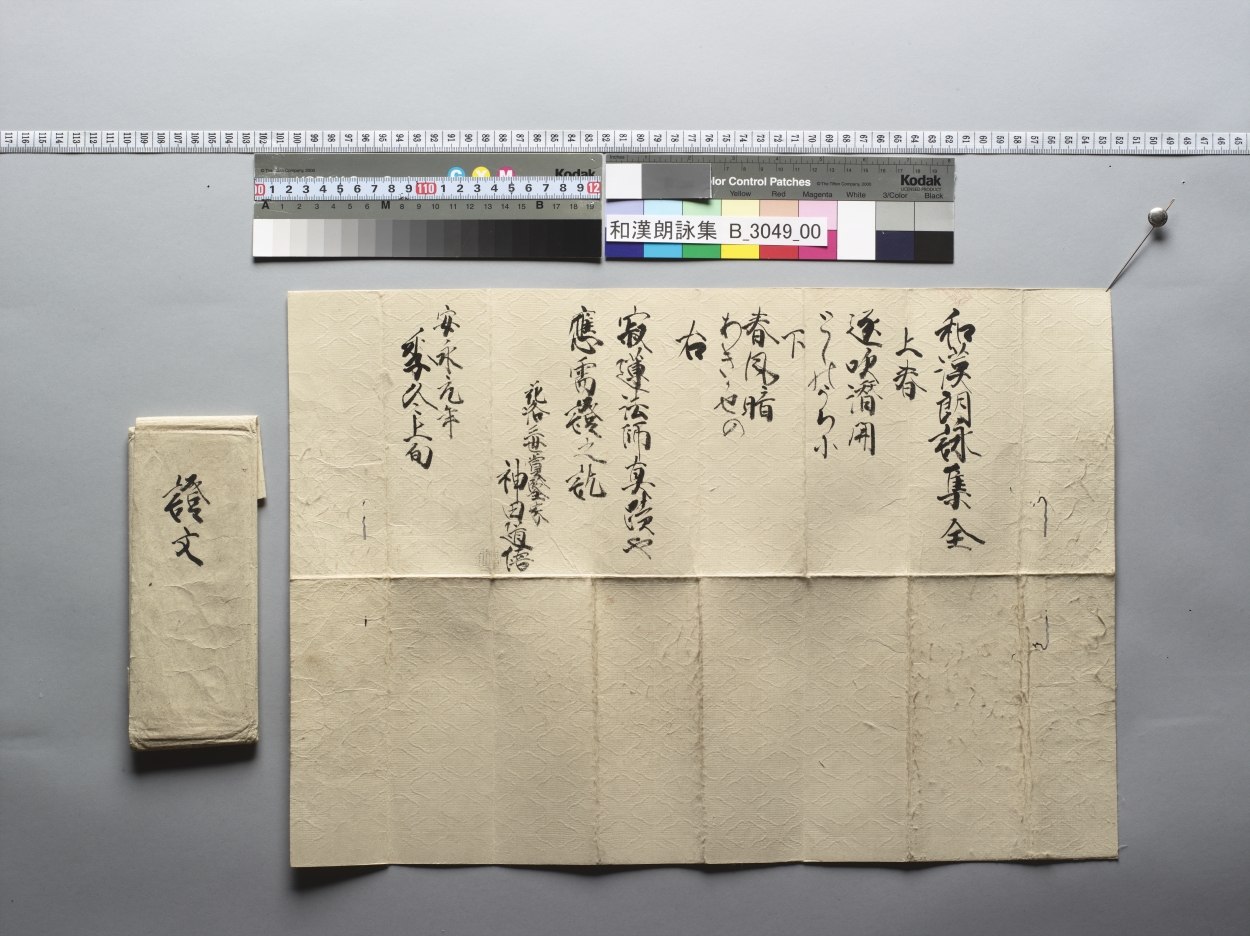 和漢朗詠集 B_3049_00
Kodak
Color Control Patches
Kodak
LICENSED PRODUCT
Yellow Red Magenta White 3/Color Black
和漢朗詠集 全
上春
逐吹潜開
としのうちに
下
春風暗
あきかせの
右
寂蓮法師真蹟也
應需證之訖
神田道僖
安永元年
季冬上旬
證文